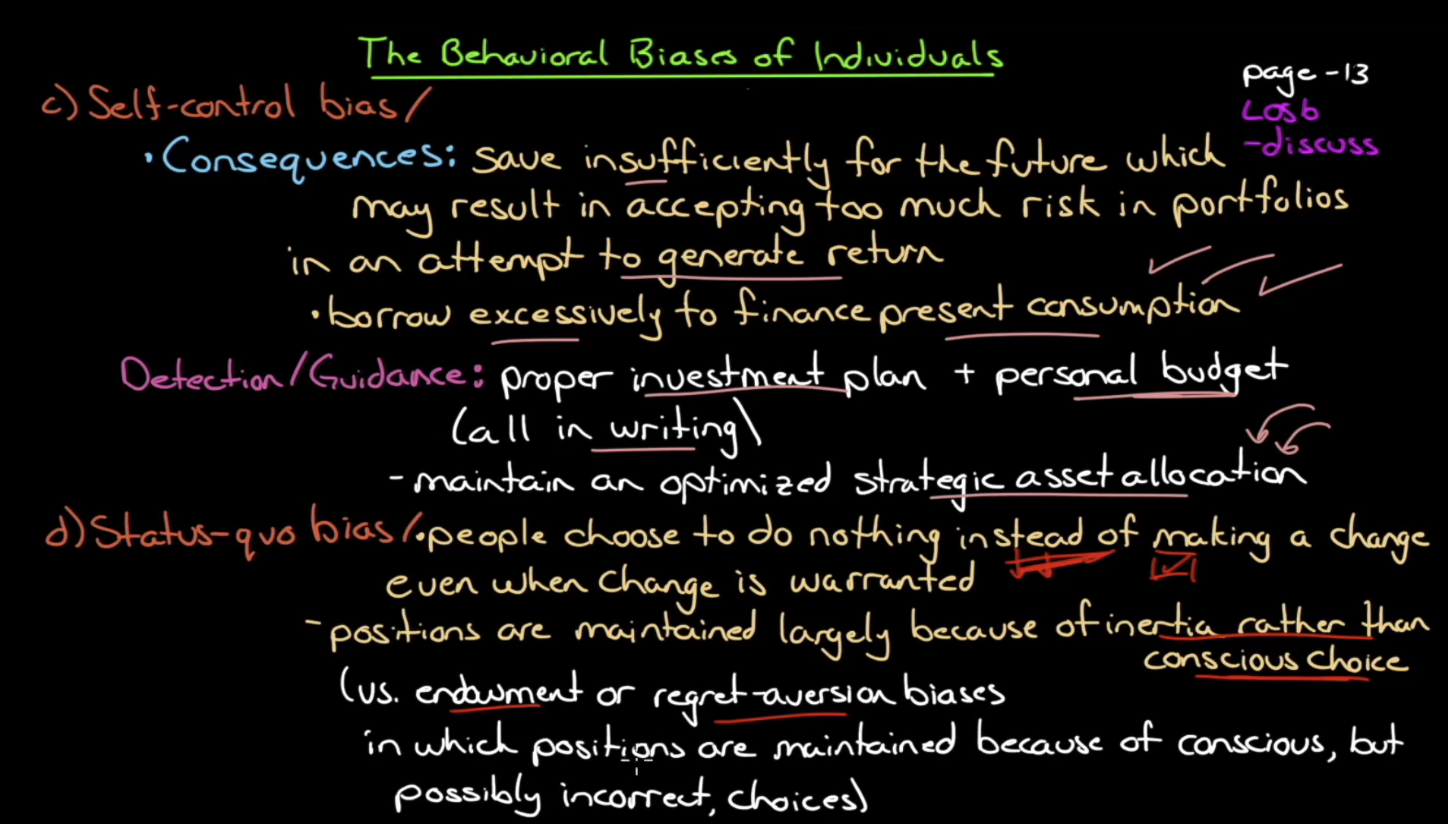 The Behavioral Biases of Individuals
page -13
LOS b
- discuss
c) Self-control bias/
• Consequences: save insufficiently for the future which
may result in accepting too much risk in portfolios
in an attempt to generate return
• borrow excessively to finance present consumption
Detection/Guidance: proper investment plan + personal budget
(all in writing)
- maintain an optimized strategic asset allocation
d) Status-quo bias/• people choose to do nothing instead of making a change
even when change is warranted
- positions are maintained largely because of inertia rather than
conscious choice
(vs. endowment or regret-aversion biases
in which positions are maintained because of conscious, but
possibly incorrect, choices)